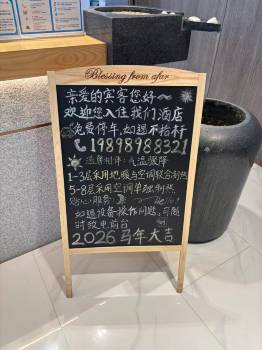 Blessing from afar
亲爱的宾客您好~
欢迎您入住我们酒店
免费停车,如遇不抬杆
19898988321
温馨
气温骤降
1-3层采用地暖与空调联合制热
5-8层采用空调单独制热
贴心服务
Hello!
如遇设备操作问题,可随
时致电前台
2026 马年大吉